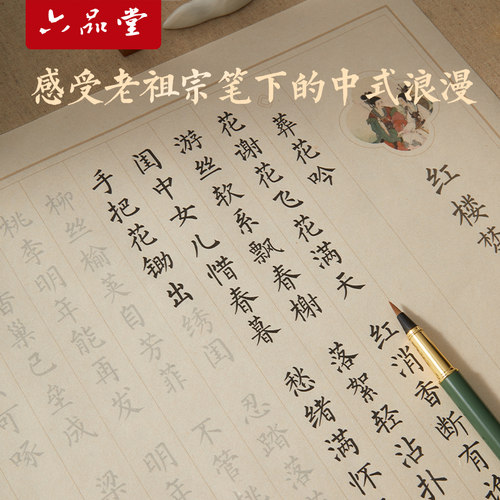 六品堂
感受老祖宗笔下的中式浪漫
红楼
葬花吟
花谢花飞花满天
红消香断有
游丝软系飘春榭
落絮轻沾扑
闺中女儿惜春暮
愁绪满怀
手把花锄出绣闺
忍踏落
柳丝榆荚自芳菲
不管桃
桃李明年能再发
明年
香巢已垒成
梁
可啄